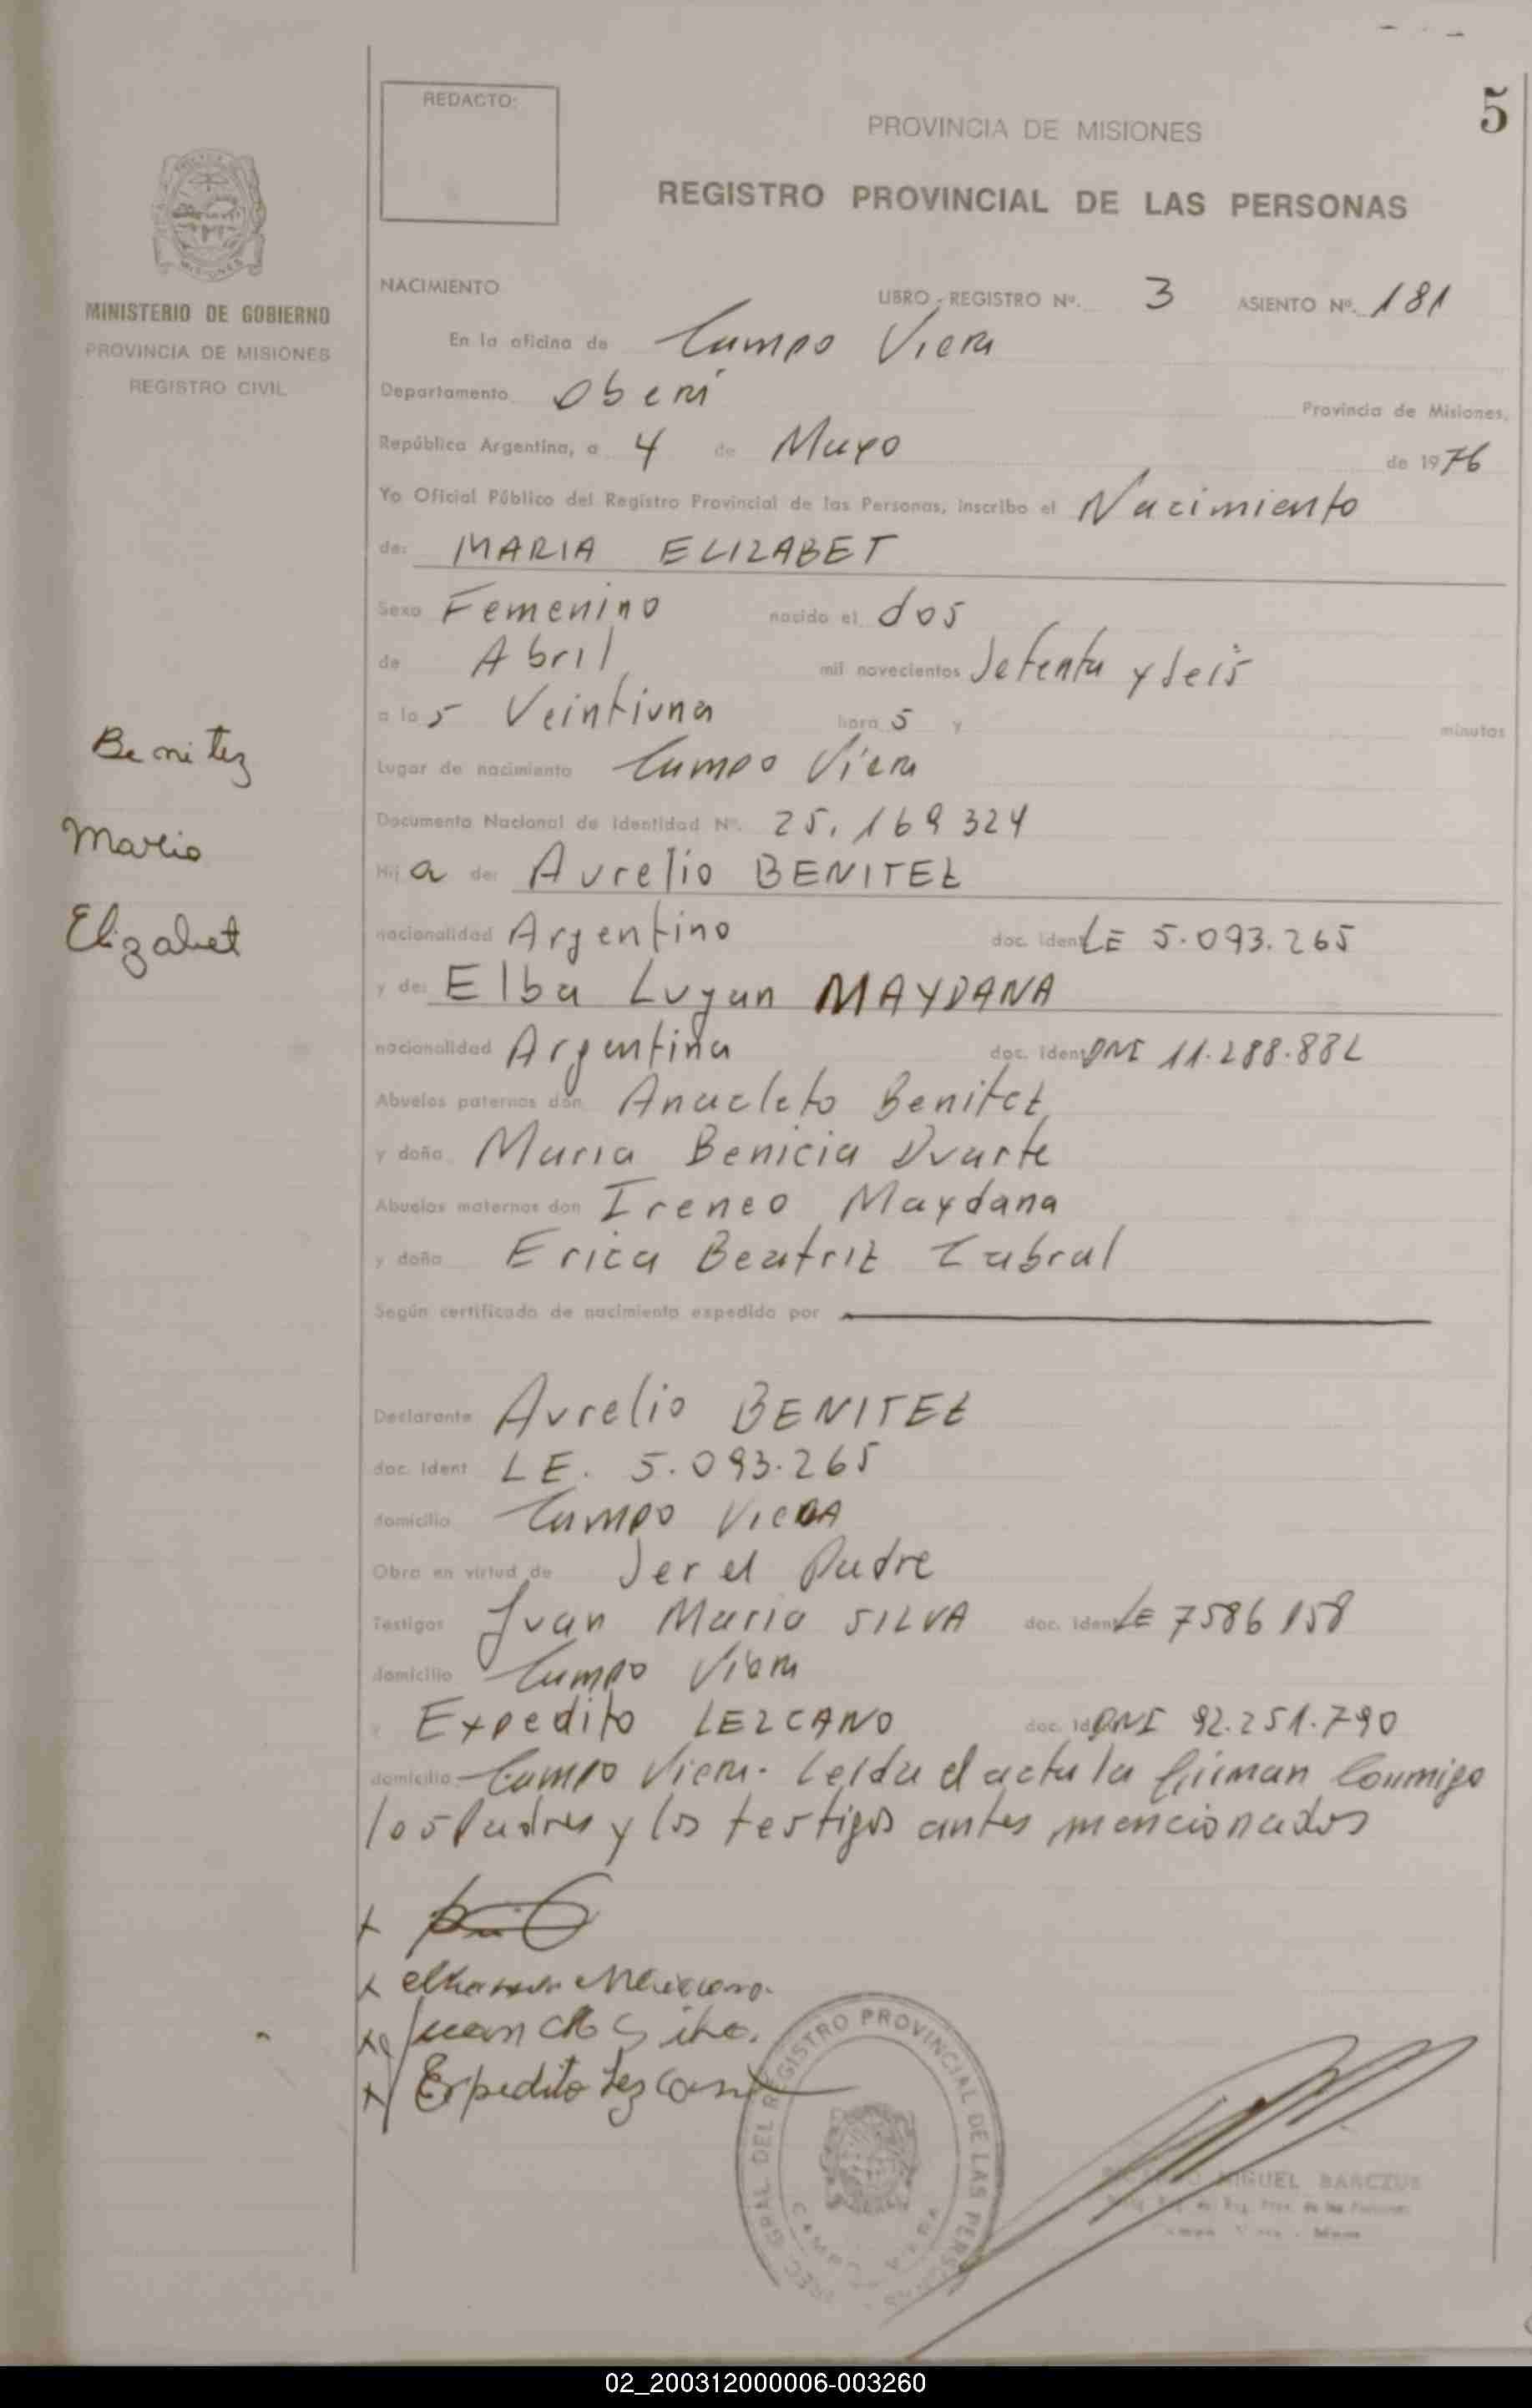 5
REDACTO:
PROVINCIA DE MISIONES
REGISTRO PROVINCIAL DE LAS PERSONAS
MISIONES
MINISTERIO DE GOBIERNO
PROVINCIA DE MISIONES
REGISTRO CIVIL
NACIMIENTO
LIBRO - REGISTRO Nº. 3 ASIENTO Nº. 181
En la oficina de Campo Viera
Departamento Oberá Provincia de Misiones,
República Argentina, a 4 de Mayo de 1976
Yo Oficial Público del Registro Provincial de las Personas, inscribo el Nacimiento
de: MARIA ELIZABET
Sexo Femenino nacido el dos
de Abril mil novecientos Setenta y Seis
a las Veintiuna horas y minutos
Lugar de nacimiento Campo Viera
Documento Nacional de Identidad Nº. 25.169324
Hija de: Aurelio BENITEZ
nacionalidad Argentino doc. ident LE 5.093.265
y de: Elba Lujan MAYDANA
nacionalidad Argentina doc. ident DNI 11.288.882
Abuelos paternos don Anacleto Benitez
y doña Maria Benicia Duarte
Abuelos maternos don Ireneo Maydana
y doña Erica Beatriz Cabral
Según certificado de nacimiento expedido por
Benitez
Maria
Elizabet
Declarante Aurelio BENITEZ
doc. ident LE. 5.093.265
domicilio Campo Viera
Obra en virtud de Ser el Padre
Testigos Juan Maria SILVA doc. ident LE 7586158
domicilio Campo Viera
y Expedito LEZCANO doc. ident DNI 92.251.790
domicilio Campo Viera. Leida el acta la firman Conmigo
los Padres y los testigos antes mencionados
Juan
Expedito Lezcano
GRAL. DEL REGISTRO PROVINCIAL DE LAS PERSONAS
CAMPO VIERA
MIGUEL BARCZUK
02_200312000006-003260